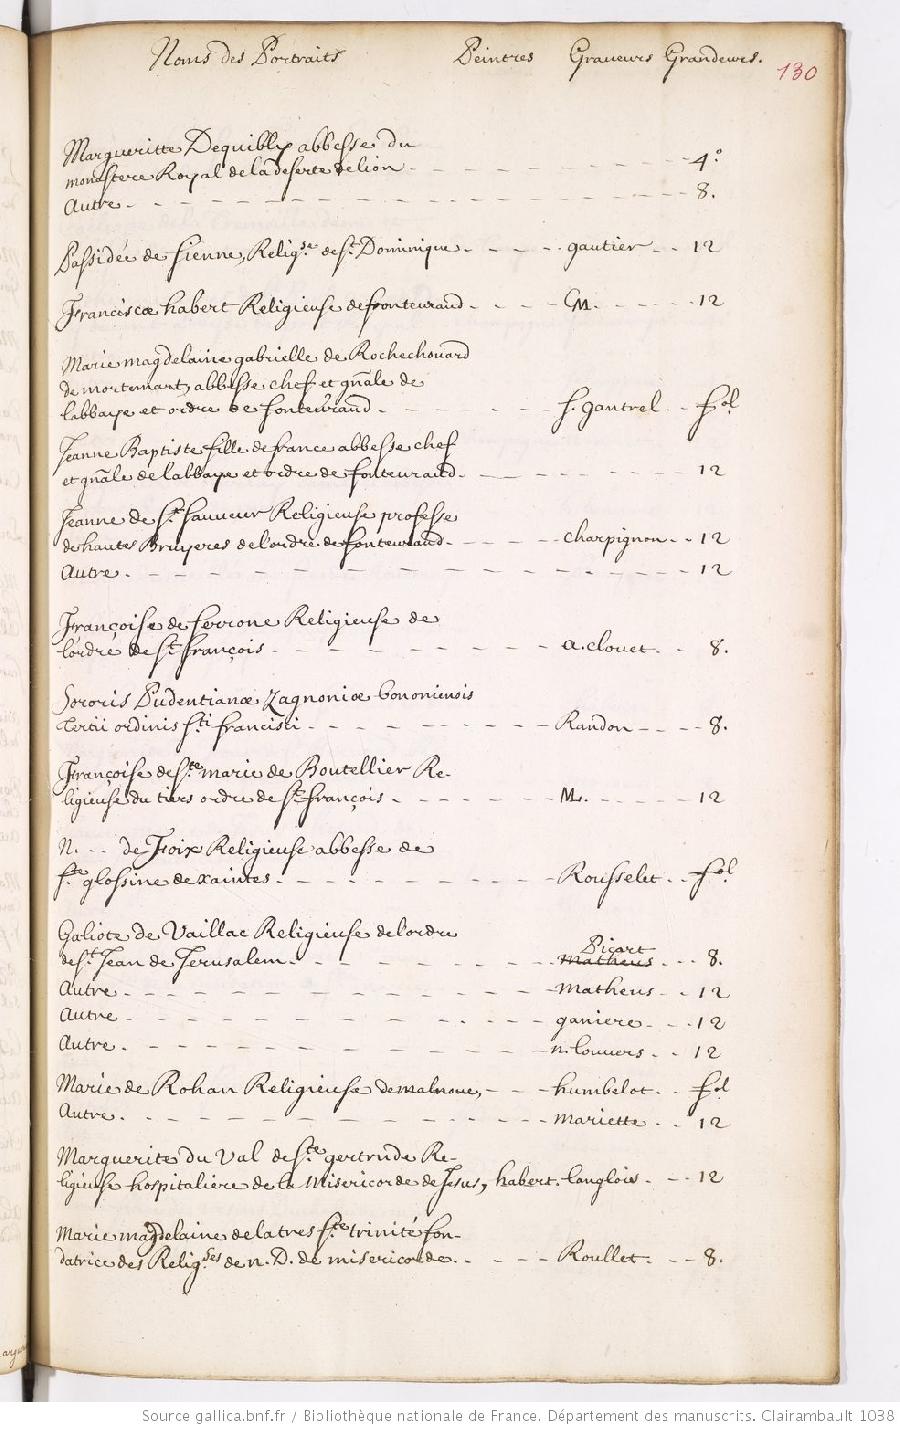 Noms des Portraits Peintres Graveurs Grandeurs.
130
Margueritte Dequibly abbesse du
monastere Royal de la deserte de lion - - - 4°
Autre - - - 8.
Passidée de sienne, Relig.se de St Dominique - - - gautier - - 12
Franciscæ habert Religieuse de fronteuraud - - - CM. - - - 12
Marie magdelaine gabrielle de Rochechouard
de mortemart, abbesse chef et gñale de
labbaye et ordre de fonteuraud - - - f. gantrel - - fol.
Jeanne Baptiste fille de france abbesse chef
et gñale de labbaye et ordre de fonteuraud - - - 12
Jeanne de St. sauueur Religieuse professe
de hautes Bruyeres de l'ordre de fonteuraud - - - charpignon - - 12
Autre - - - 12
Françoise de serrone Religieuse de
l'ordre de St. françois - - - a. clouet - - 8.
Sororis Pudentianæ Zagnoniæ bononiensis
tertii ordinis s.ti francisci - - - Randon - - - 8.
Françoise de Ste. marie de Boutellier Re-
ligieuse du tiers ordre de St. françois - - - M. - - - 12
N. - - de Foix Religieuse abbesse de
ste. glossine de xaintes - - - Rousselet - - fol.
Galiote de Vaillac Religieuse de l'ordre
de St. Jean de Jerusalem - - - Picart matheus - - - 8.
Autre - - - matheus - - 12
Autre - - - ganiere - - 12
Autre - - - n. louuers - - 12
Marie de Rohan Religieuse de malnoue, - - - humbelot - - fol
Autre - - - mariette - - 12
Marguerite du Val de Ste. gertrude Re-
ligieuse hospitaliere de la misericorde de Jesus, habert. langlois - - - 12
Marie magdelaine de la tres ste. trinité fon-
datrice des Relig.ses de n. D. de misericorde - - - Roullet - - - 8.
Source gallica.bnf.fr / Bibliothèque nationale de France. Département des manuscrits. Clairambault 1038